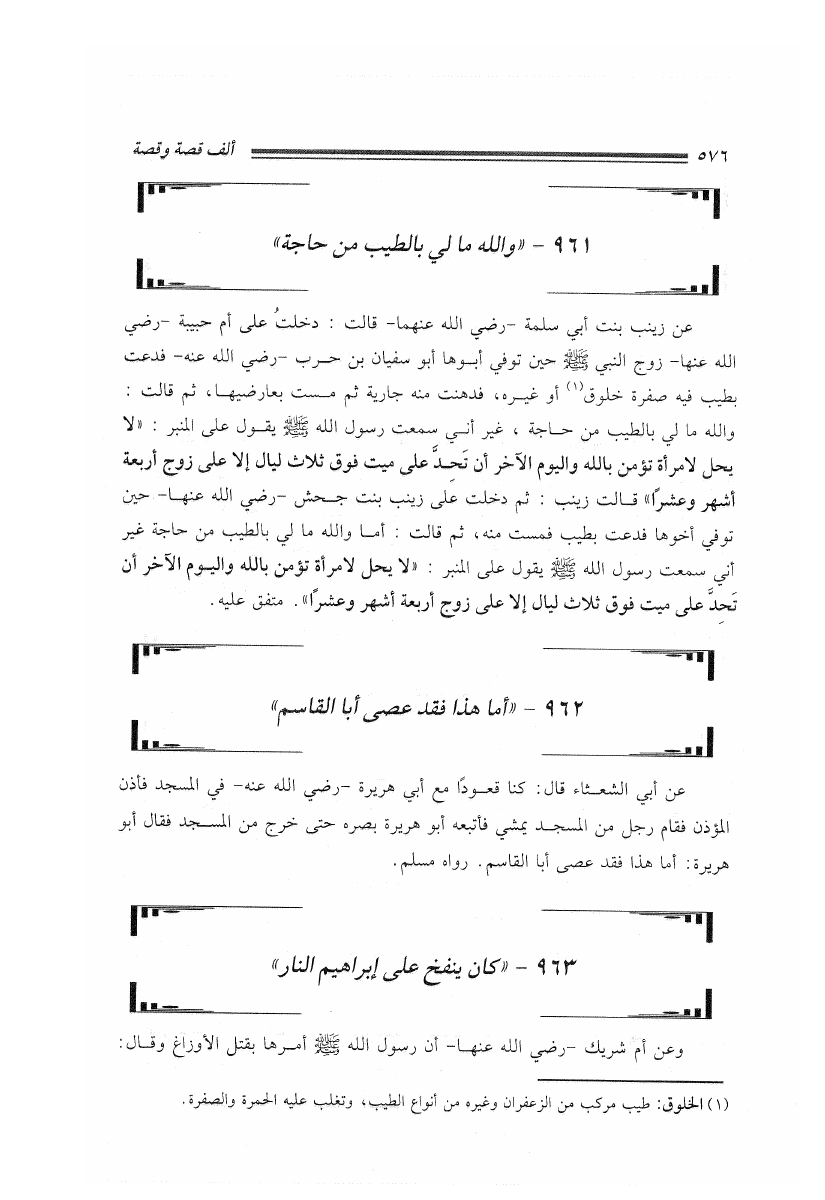 ٥٧٦ ألف قصة وقصة
٩٦١ - «والله ما لي بالطيب من حاجة»
عن زينب بنت أبي سلمة -رضي الله عنهما- قالت : دخلتُ على أم حبيبة -رضي
الله عنها- زوج النبي ﷺ حين توفي أبوها أبو سفيان بن حرب -رضي الله عنه- فدعت
بطيب فيه صفرة خلوق(١) أو غيره، فدهنت منه جارية ثم مست بعارضيها، ثم قالت :
والله ما لي بالطيب من حاجة ، غير أني سمعت رسول الله ﷺ يقول على المنبر : «لا
يحل لامرأة تؤمن بالله واليوم الآخر أن تَحِدَّ على ميت فوق ثلاث ليال إلا على زوج أربعة
أشهر وعشرًا» قالت زينب : ثم دخلت على زينب بنت جحش -رضي الله عنها- حين
توفي أخوها فدعت بطيب فمست منه، ثم قالت : أما والله ما لي بالطيب من حاجة غير
أني سمعت رسول الله ﷺ يقول على المنبر : «لا يحل لامرأة تؤمن بالله واليوم الآخر أن
تَحِدَّ على ميت فوق ثلاث ليال إلا على زوج أربعة أشهر وعشرًا». متفق عليه.
٩٦٢ - «أما هذا فقد عصى أبا القاسم»
عن أبي الشعثاء قال: كنا قعودًا مع أبي هريرة -رضي الله عنه- في المسجد فأذن
المؤذن فقام رجل من المسجد يمشي فأتبعه أبو هريرة بصره حتى خرج من المسجد فقال أبو
هريرة: أما هذا فقد عصى أبا القاسم. رواه مسلم.
٩٦٣ - «كان ينفخ على إبراهيم النار»
وعن أم شريك -رضي الله عنها- أن رسول الله ﷺ أمرها بقتل الأوزاغ وقال:
(١) الخلوق: طيب مركب من الزعفران وغيره من أنواع الطيب، وتغلب عليه الحمرة والصفرة.